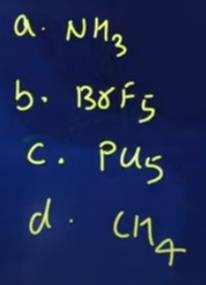 a. NH3
b. BrF5
c. PCl5
d. CH4